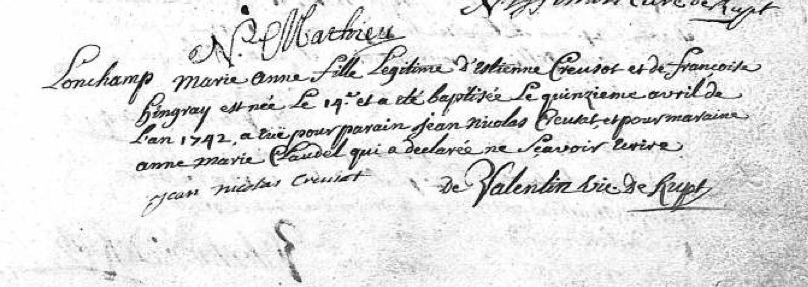 Curé de Rupt
N. Mathieu
Lonchamp Marie Anne fille Legitime d'Estienne Creusot et de françoise
hingray est née le 14.e et a été baptisée Le quinzieme avril de
L'an 1742, a eüe pour parain jean Nicolas Creusot, et pour maraine
anne marie Claudel qui a declarée ne sçavoir ecrire
jean nicolas Creusot
de Valentin vic de Rupt